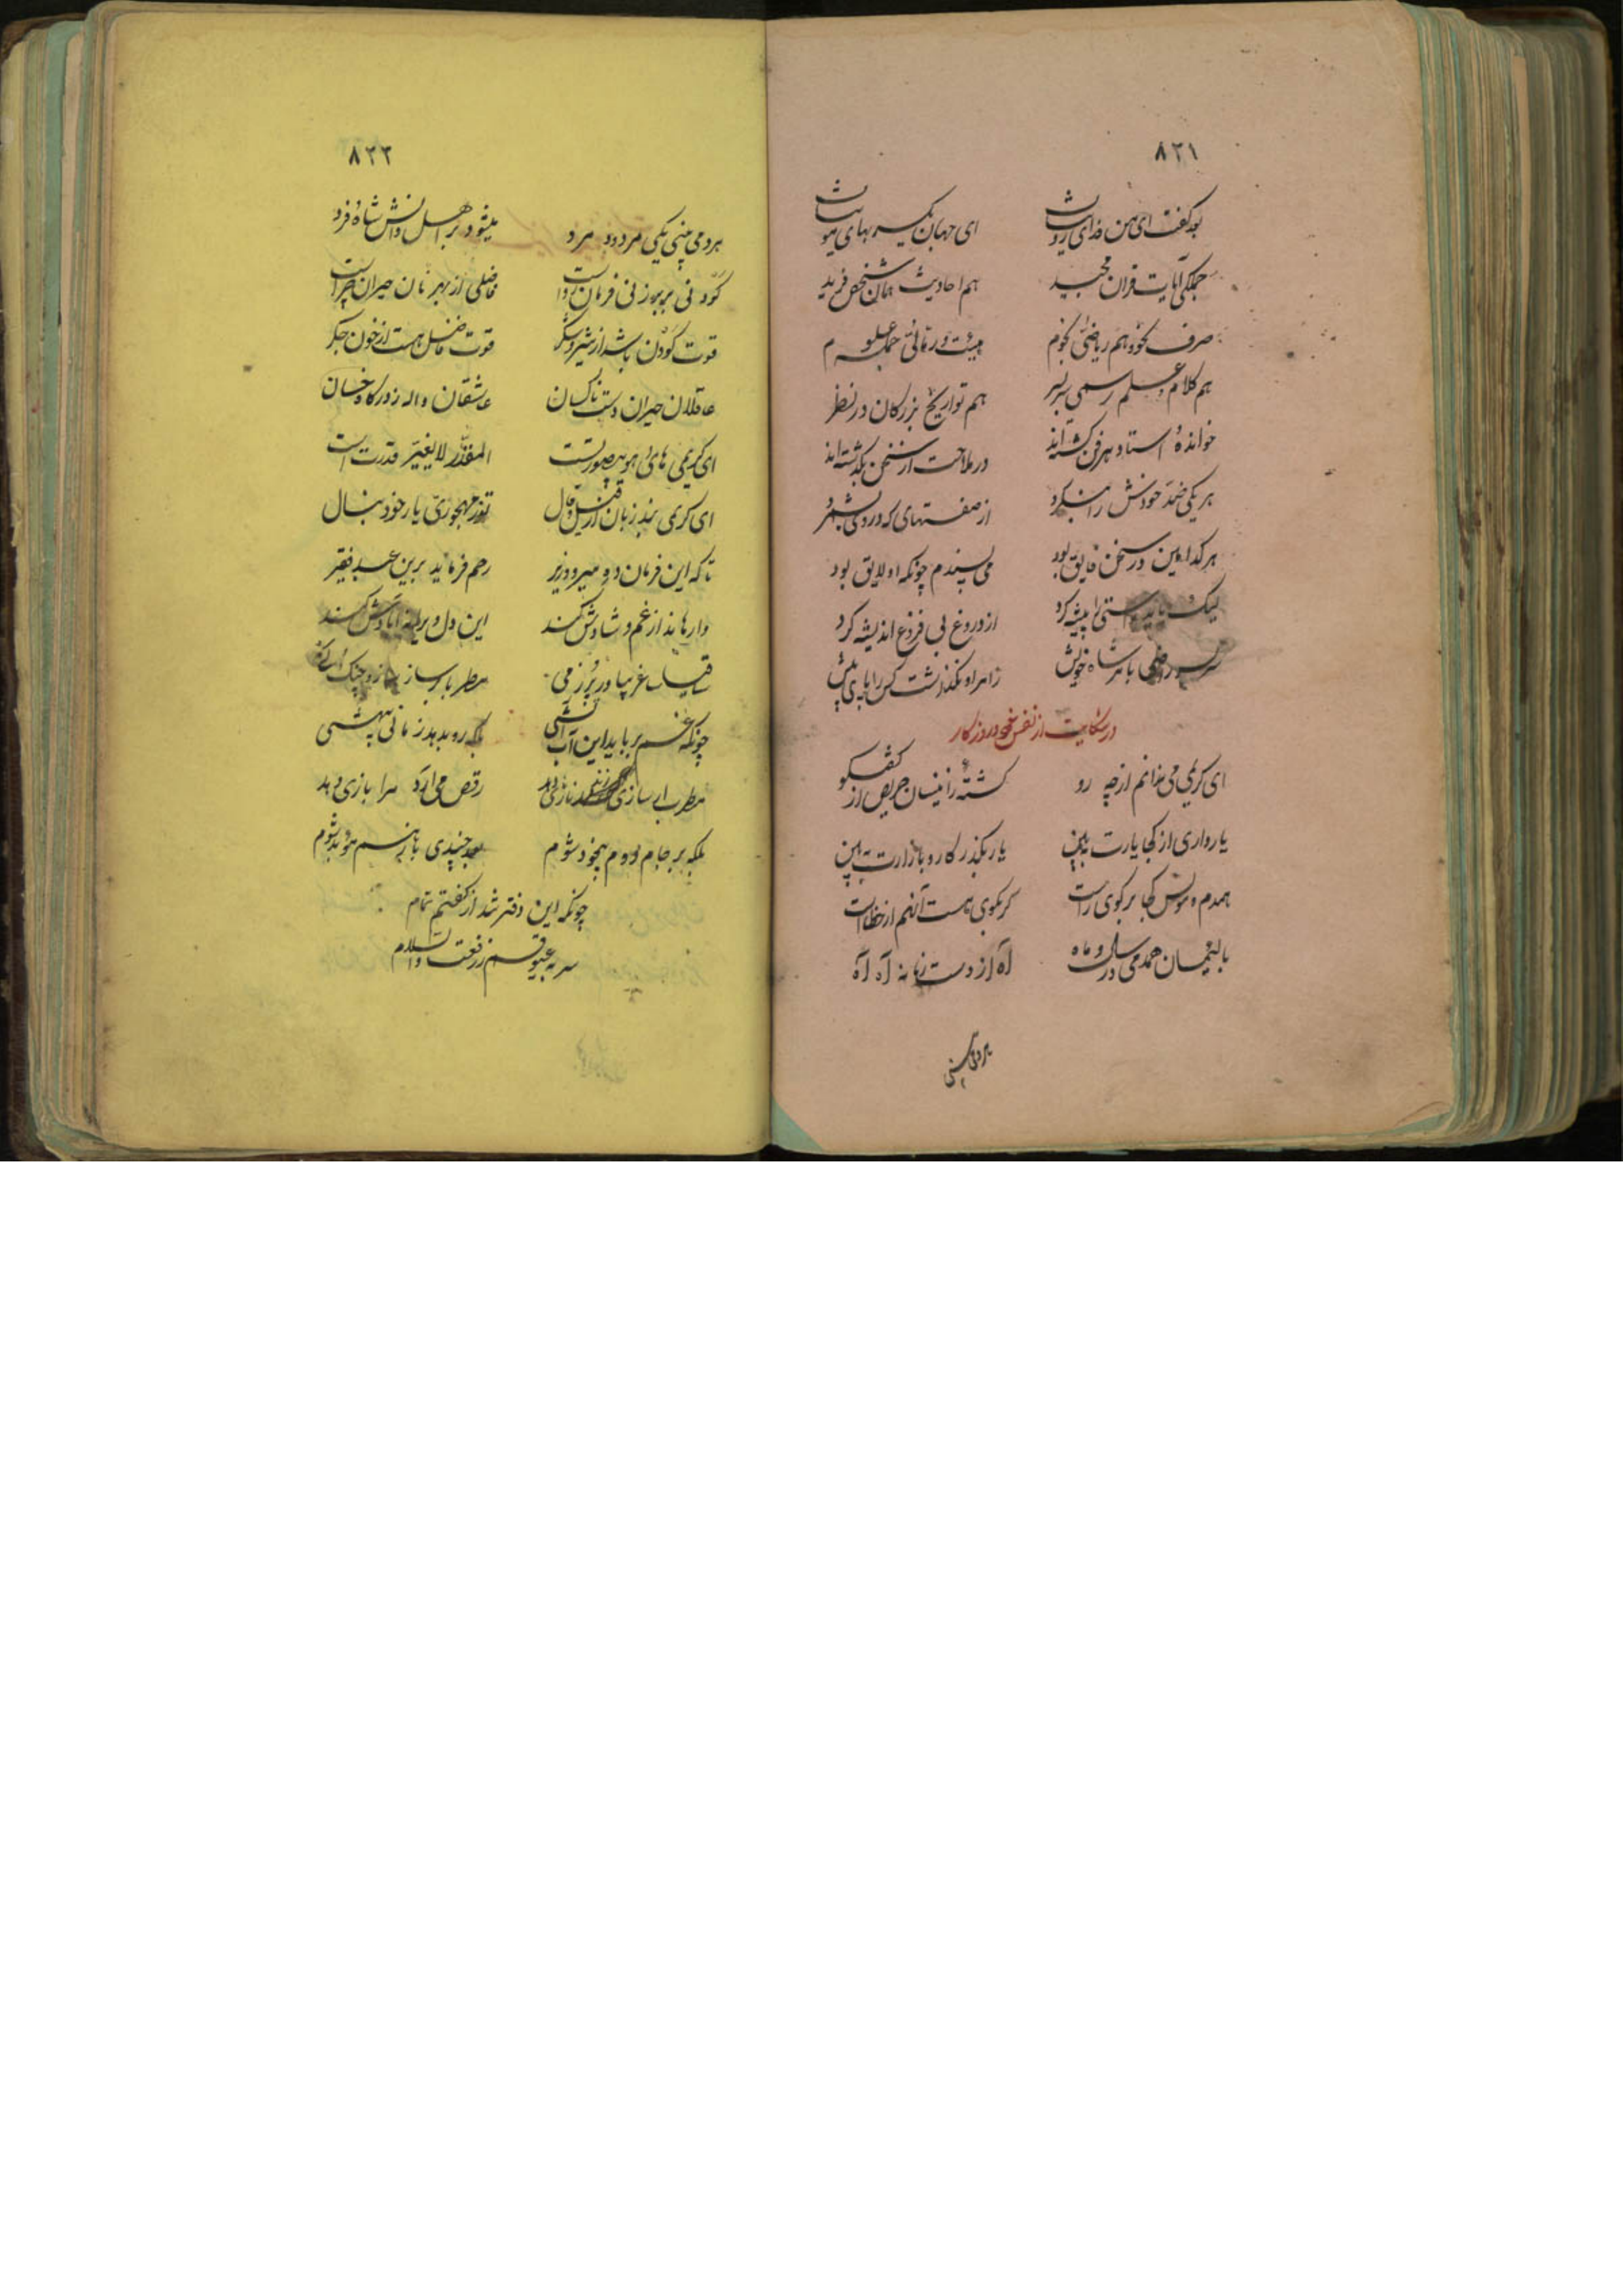 ۸۲۱
بعد گفت ای من فدای روت ای جهان یکسر بهای موت
جملکی آیات قران مجید هم احادیث همان شخص فرید
صرف نحو و هم ریاضی نجوم هیئت و رمالی جمله علوم
هم کلام و علم رسمی سربسر هم تواریخ بزرکان در نظر
خوانده استاد هر فن کشته‌اند در ملاحت از سخن بگذشته‌اند
هر یکی ضد خودش را از صفتهای که در وی
هر کدامین در سخن فایق بود می پسندم چونکه او لایق بود
لیک باید راستی را پیشه کرد از دروغ بی فروغ اندیشه کرد
با شاه خویش زامر او نگذشت کس را پای پیش
در شکایت از نفس خود و روزکار
ای کریمی می ندانم از چه رو کشته زانیسان حریص از گفتگو
یار داری از کجا یارت ببین یار بگذر کار و بازارت ببین
همدم و مونس کجا بر کوی راست کر بکوی هست آنهم از خطاست
با لئیمان همدمی در سال و ماه آه از دست زمانه آه آه
هر دمی بینی
۸۲۲
هر دمی بینی یکی مردود مرد میشود بر اهل دانش شاه فرد
کودنی بر بوزنی فرمان رواست فاضلی از بهر نان حیران چراست
قوت کودن باشد از شیر و شکر قوت فاضل هست از خون جکر
عاقلان حیران دست ناکسان عاشقان واله ز درکاه خسان
ای کریمی های هو بی صورتست المقدر لایغیر قدرت است
ای کریمی بند زبان از قیل و قال تو ز مهجوری یار خود بنال
تا که این فرمان ده میر و وزیر رحم فرماید برین عبد فقیر
وارهاند از غم و شادش کند این دل ویرانه آبادش کند
ساقیا ساغر بیاور پر ز می مطربا بر ساز و چنک
چونکه غم برباید این آب آتشی بلکه رو بدهد زمانی بیهشی
مطرب ار سازی رقص می‌آرد مرا بازی دهد
بلکه بر جام دوم بیخود شوم بعد چندی باز هم موبد شوم
چونکه این دفتر شد از کفتم تمام
سر به عیوقم ز رفعت والسلام